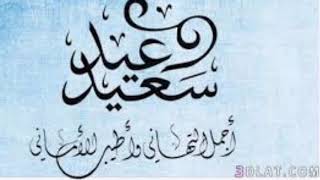 عيد
سعيد
أجمل التهاني وأطيب الأماني
3DLAT.COM